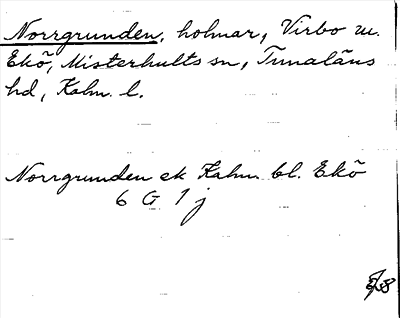 Norrgrunden, holmar, Virbo m.
Ekö, Misterhults sn, Tunaläns
hd, Kalm. l.
Norrgrunden ek Kalm. bl. Ekö
6 G 1 j